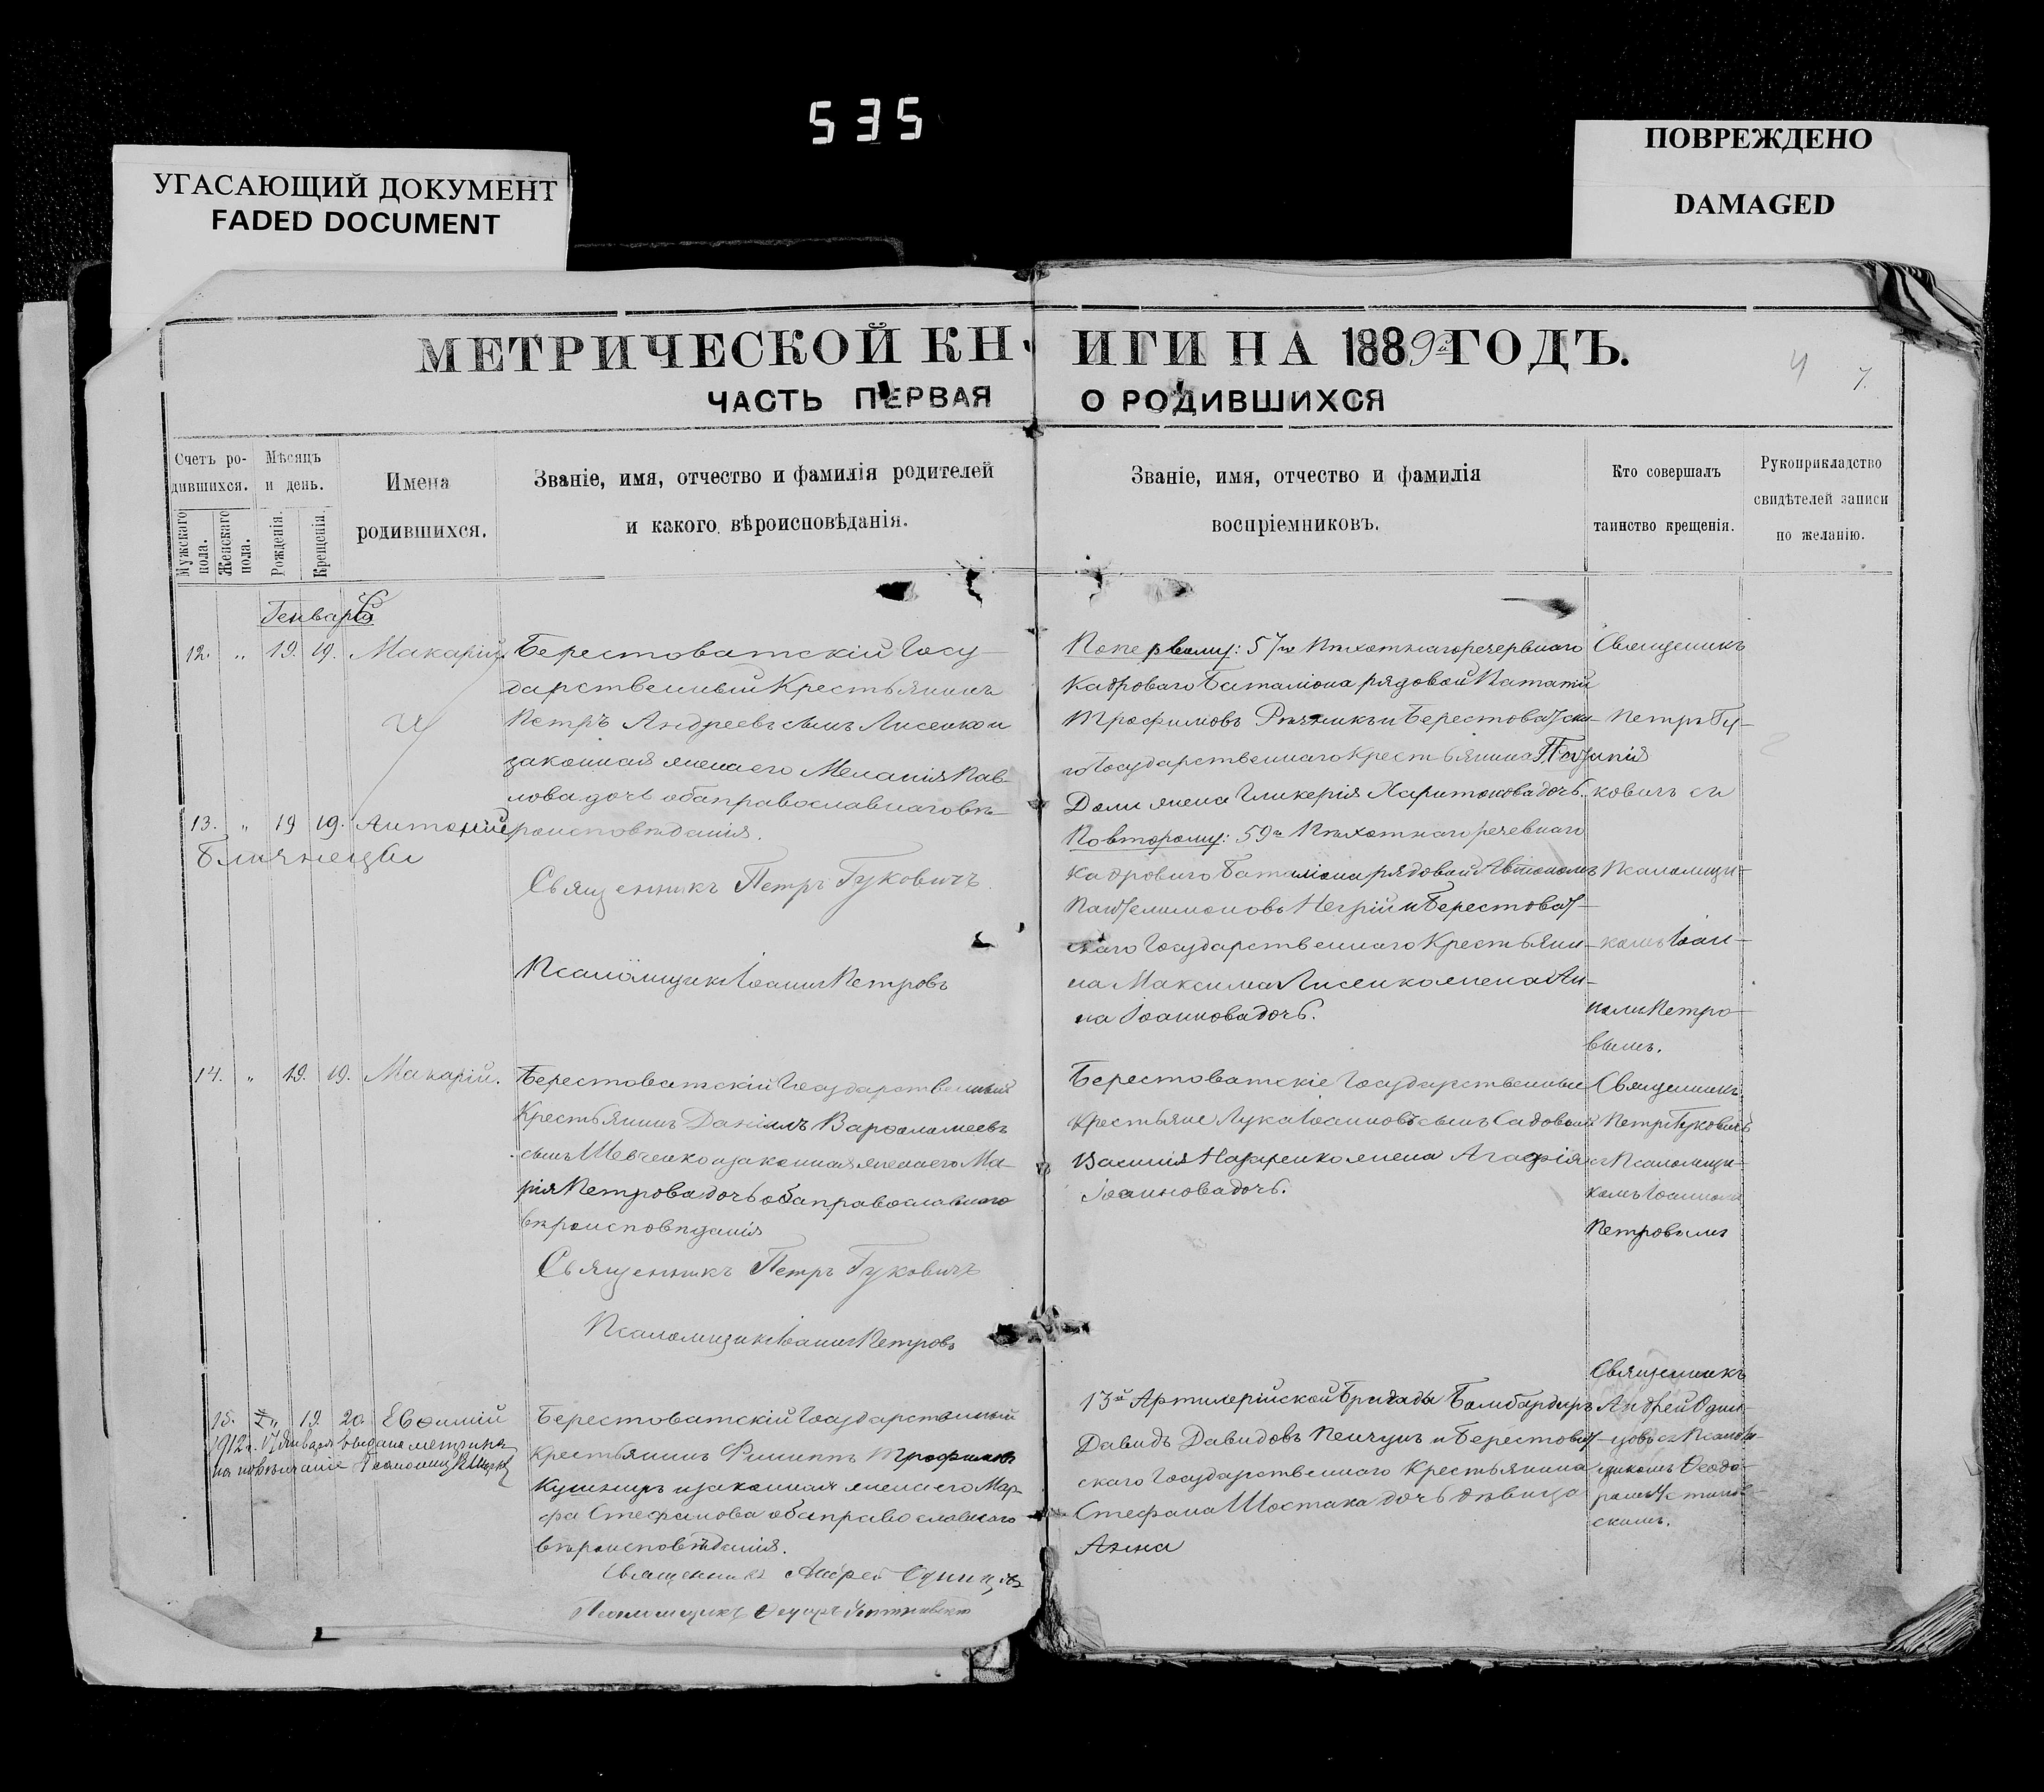 535
УГАСАЮЩИЙ ДОКУМЕНТ
FADED DOCUMENT
ПОВРЕЖДЕНО
DAMAGED
МЕТРИЧЕСКОЙ КНИГИ НА 1889й ГОДЪ.
4 7.
ЧАСТЬ ПЕРВАЯ О РОДИВШИХСЯ
Счетъ ро-
дившихся.
Мужскаго пола.
Женскаго пола.
Мѣсяцъ
и день.
Рожденія.
Крещенія.
Имена
родившихся.
Званіе, имя, отчество и фамилія родителей
и какого вѣроисповѣданія.
Званіе, имя, отчество и фамилія
воспріемниковъ.
Кто совершалъ
таинство крещенія.
Рукоприкладство
свидѣтелей записи
по желанію.
Генваря
12. " 19. 19. Макарій
Берестоватскій Госу-
дарственный Крестьянинъ
Петръ Андреевъ сынъ Лисенко и
законная жена его Меланія Пав-
лова дочь оба православнаго вѣ-
роисповѣданія.
13. " 19 19. Антоній
близнецы
Священникъ Петръ Гуковичъ
Псаломщикъ Іоаннъ Петровъ
По первому: 57го Пѣхотнаго резервнаго
Кадроваго баталіона рядовой
Трофимовъ и Берестоватска-
го Государственнаго Крестьянина
жена Гликерія Харитонова дочь.
По второму: 59го Пѣхотнаго
Кадроваго баталіона рядовой Автономъ
Пантелимоновъ Негрій и Берестоват-
скаго Государственнаго Крестьяни-
на Максима Лисенко жена Ан-
на Іоаннова дочь.
Священникъ
Петръ Гу-
ковичъ съ
Псаломщи-
комъ Іоан-
номъ Петро-
вымъ.
14. " 19. 19. Макарій.
Берестоватскій Государственный
Крестьянинъ Даніилъ Варфоломеевъ
сынъ Шевченко и законная жена его Ма-
рія Петрова дочь оба православнаго
вѣроисповѣданія
Священникъ Петръ Гуковичъ
Псаломщикъ Іоаннъ Петровъ
Берестоватскіе Государственные
Крестьяне Лука Іоанновъ сынъ Садовый
Василія Назаренко жена Агафія
Іоаннова дочь.
Священникъ
Петръ Гуковичъ
съ Псаломщи-
комъ Іоанномъ
Петровымъ
15. " 19. 20. Евфимій
1912 г. 17 Января выдана метрика
на повѣнчаніе
Берестоватскій Государственный
Крестьянинъ Филиппъ Трофимовъ
Кушниръ и законная жена его Мар-
фа Стефанова оба православнаго
вѣроисповѣданія.
Священникъ Андрей Одинцовъ
Псаломщикъ
13й Артилерійской бригады бомбардиръ
Давидъ Давидовъ Пенчукъ и Берестоват-
скаго Государственнаго Крестьянина
Стефана Шостака дочь дѣвица
Анна
Священникъ
Андрей Один-
цовъ съ Псалом-
щикомъ Феодо-
ромъ
скимъ.